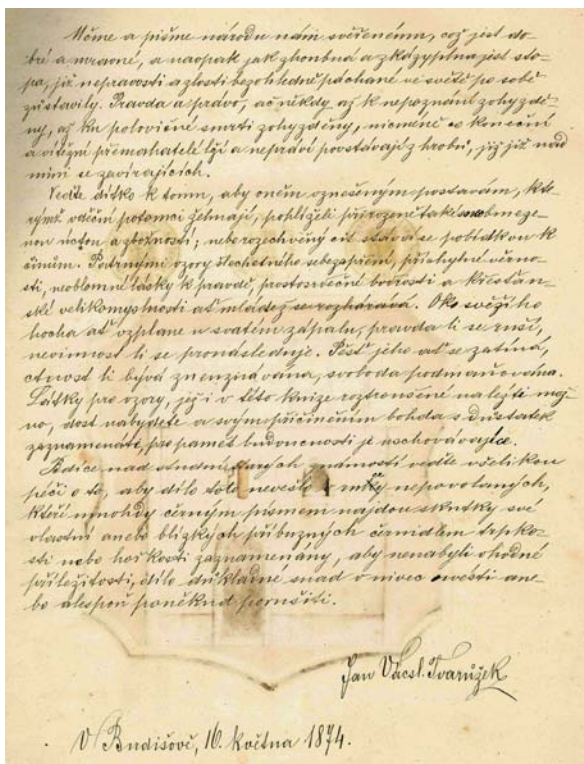 Učme a pišme národu nám svěřenému, což jest do-
bré a mravné, a naopak jak zhoubná a zkázyplna jest sto-
pa, již nepravosti a zlosti bezohledně páchané ve světě po sobě
zůstavily. Pravda a právo, ač někdy až k nepoznání zohyzdě-
ny, až ku polovičné smrti zohyzděny, nicméně co koneční
a vítězní přemahatelé lži a nepráví povstávají z hrobů, jež již nad
nimi se zavírajících.
Veďte dítko k tomu, aby oněm vznešeným postavám, kte-
rýmž vděční potomci žehnají, pohlíželi přirozeně také s neobmeze-
nou úctou a zbožností; neb rozechvěný cit stává se pobídkou k
činům. Podrnými vzory šlechetného sebezapření, příchylné věrno-
sti, neoblomné lásky k pravdě, prostosrdečné bodrosti a křesťan-
ské velikomyslnosti ať mládež se rozhárává. Oko svěžího
hocha ať vzplane v svatém zápalu, pravda li se ruší,
nevinnost li se pronásleduje. Pěsť jeho ať se zatíná,
ctnost li bývá zneuznávána, svoboda podmaňována.
Látky pro vzory, jež i v této knize roztroušené nalézti mož-
no, dost nabydete a svým přičiněním bohdá s důstatek
zaznamenáte, pro paměť budoucnosti je uschovávajíce.
Bdíce nad studní starých známostí veďte všelikou
péči o to, aby dílo toto nevešlo v ruky nepovolaných,
kteří mnohdy černým písmem najdou skutky své
vlastní anebo blízkých příbuzných černidlem trpko-
sti nebo hořkosti zaznamenány, aby nenabyli vhodné
příležitosti, dílo důkladné snad v nivec uvésti ane-
bo alespoň poněkud porušiti.
Jan Vácsl. Tvarůžek
V Budišově, 16. května 1874.